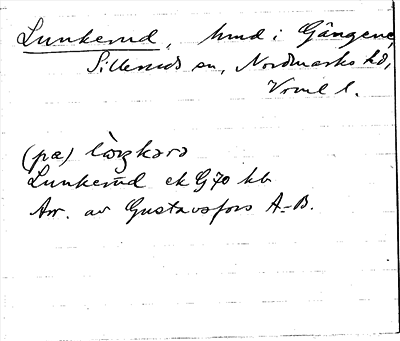 Lunkerud, hmd i Gängene,
Silleruds sn, Nordmarks hd,
Vrml l.
(pæ)
Lunkerud ek G 70 kb
Arr. av Gustavsfors A.-B.